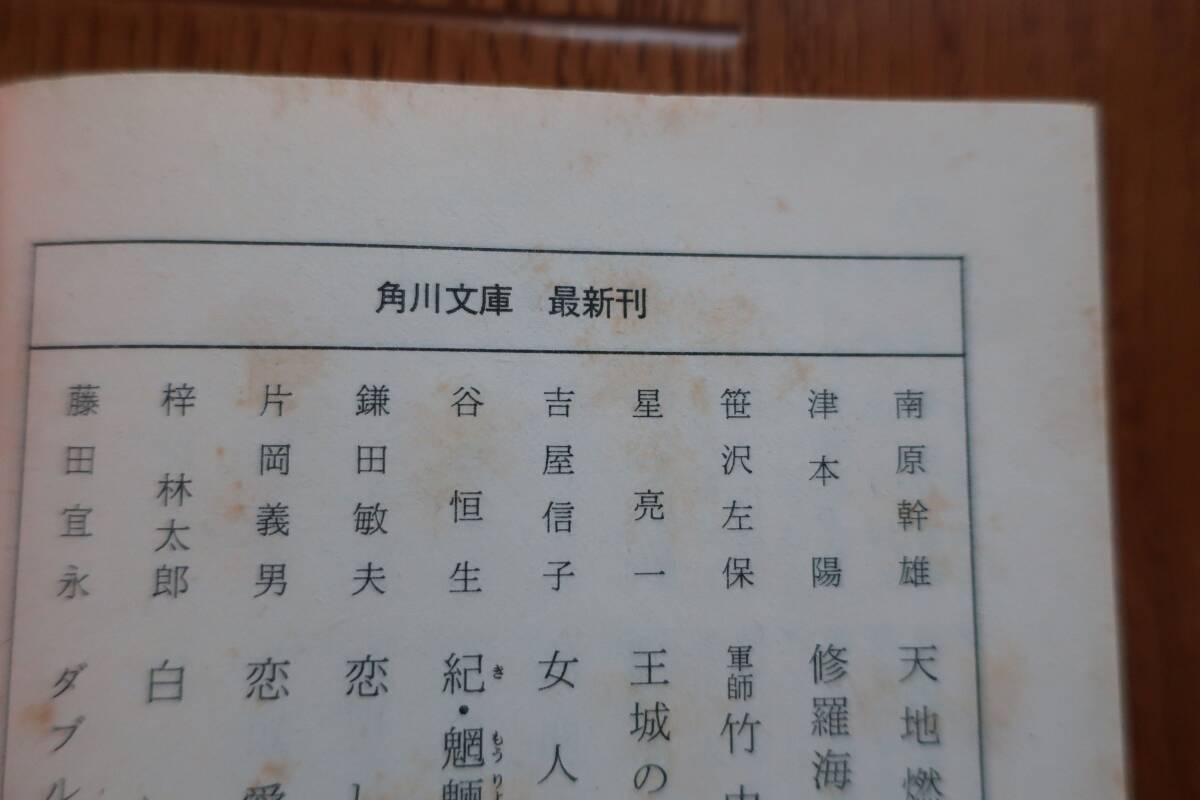 角川文庫 最新刊
南原幹雄 天地燃
津本陽 修羅海
笹沢左保 軍師 竹中
星亮一 王城の
吉屋信子 女人
谷恒生 紀・魍魎
き もうりょ
鎌田敏夫 恋し
片岡義男 恋愛
梓林太郎 白
藤田宜永 ダブル